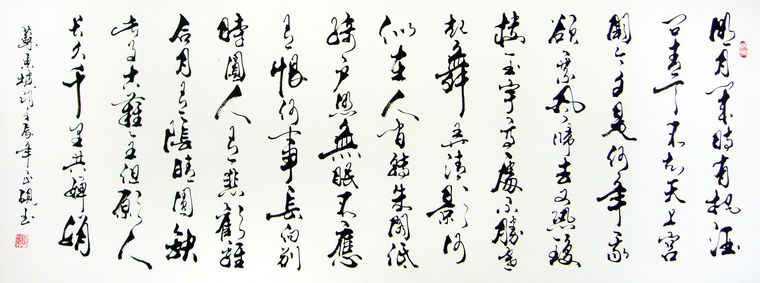 明月幾時有把酒
问青天不知天上宮
闕今夕是何年我
欲乘风歸去又恐瓊
樓玉宇高處不勝寒
起舞弄清影何
似在人间转朱閣低
綺户照無眠不應
有恨何事長向别
時圓人有悲歡離
合月有陰晴圓缺
此事古難全但願人
长久千里共嬋娟
蘇東坡詞壬辰年硯书